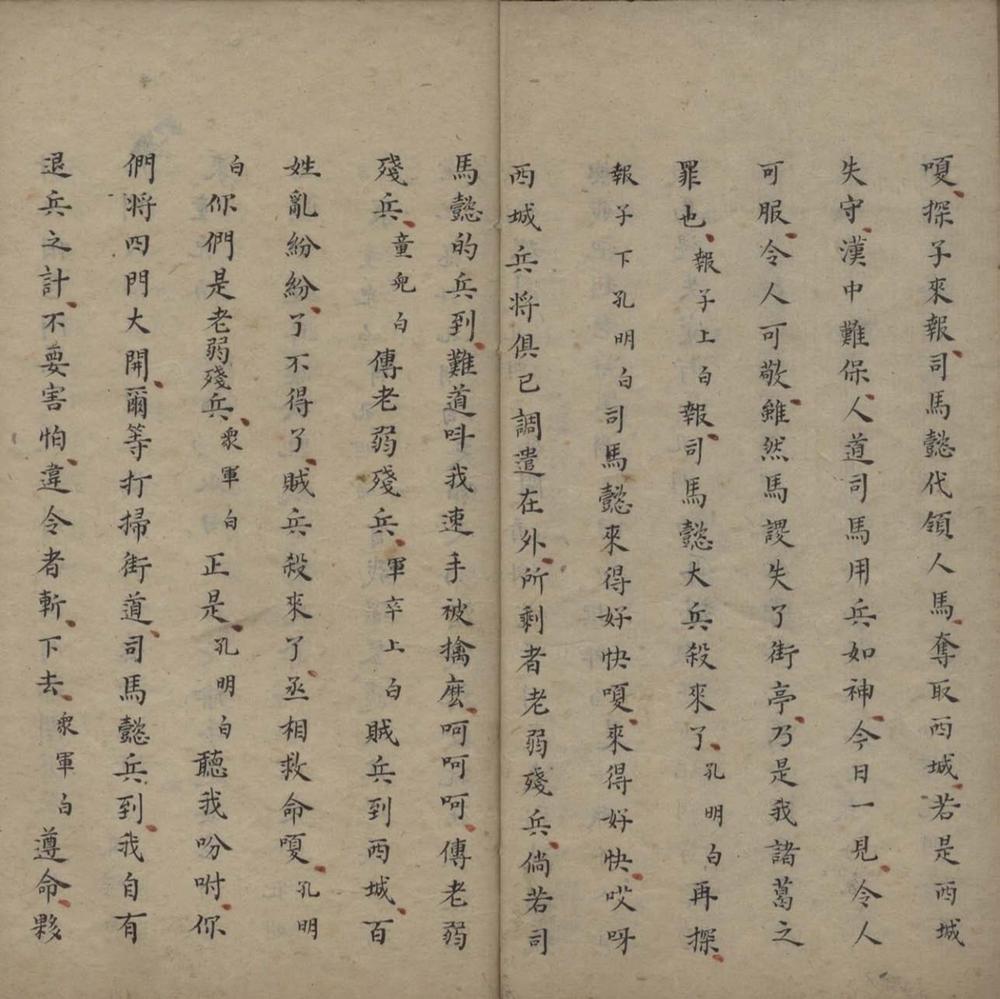 嗄探子來報司馬懿代領人馬奪取西城若是西城
失守漢中難保人道司馬用兵如神今日一見令人
可服令人可敬雖然馬謖失了街亭乃是我諸葛之
罪也報子上白報司馬懿大兵殺來了孔明白再探
報子下孔明白司馬懿來得好快嗄來得好快哎呀
西城兵将俱已調遣在外所剩者老弱殘兵倘若司
馬懿的兵到難道呌我速手被擒麽呵呵呵傳老弱
殘兵童兒白傳老弱殘兵軍卒上白賊兵到西城百
姓亂紛紛了不得了賊兵殺來了丞相救命嗄孔明
白你們是老弱殘兵衆軍白正是孔明白聽我吩咐你
們将四門大開爾等打掃街道司馬懿兵到我自有
退兵之計不要害怕違令者斬下去衆軍白遵命夥